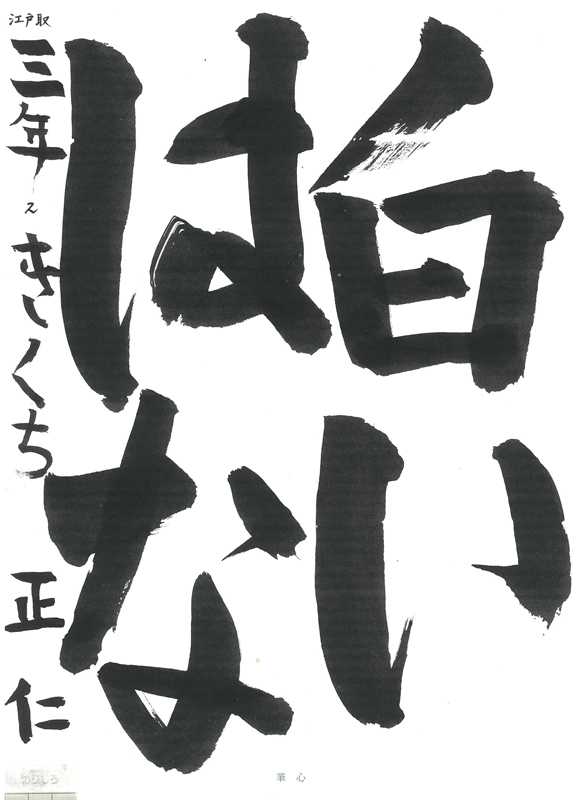 白い
はな
江戸取
三年 え きくち 正仁
筆心